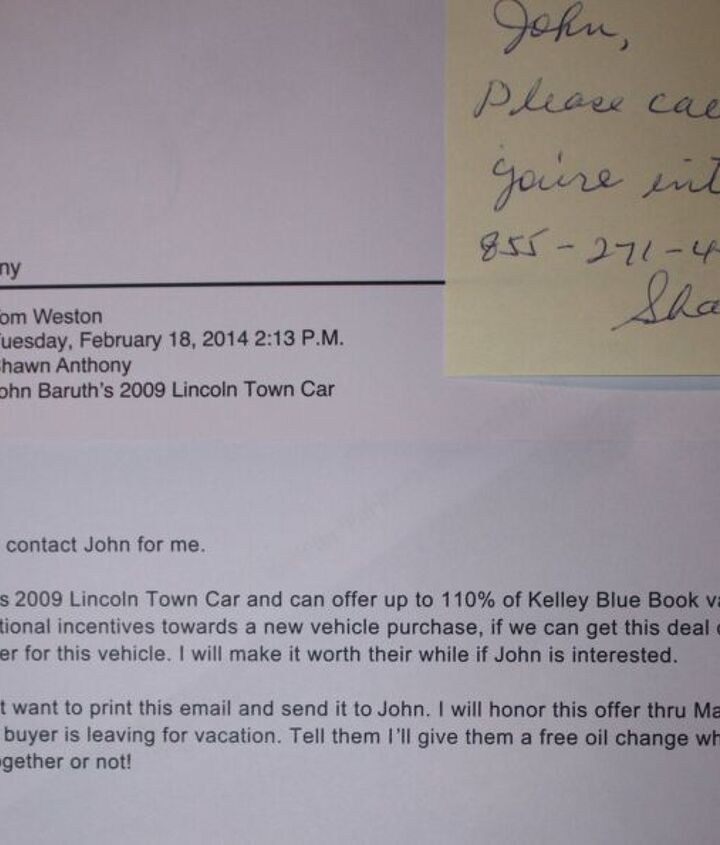 John,
Please
you're
855-271-4
Sha
ny
om Weston
uesday, February 18, 2014 2:13 P.M.
hawn Anthony
ohn Baruth's 2009 Lincoln Town Car
contact John for me.
s 2009 Lincoln Town Car and can offer up to 110% of Kelley Blue Book va
tional incentives towards a new vehicle purchase, if we can get this deal
er for this vehicle. I will make it worth their while if John is interested.
t want to print this email and send it to John. I will honor this offer thru Ma
buyer is leaving for vacation. Tell them I'll give them a free oil change wh
gether or not!